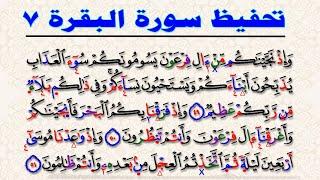 تحفيظ سورة البقرة ٧
وَإِذْ نَجَّيْنَٰكُم مِّنْ ءَالِ فِرْعَوْنَ يَسُومُونَكُمْ سُوٓءَ ٱلْعَذَابِ
يُذَبِّحُونَ أَبْنَآءَكُمْ وَيَسْتَحْيُونَ نِسَآءَكُمْ ۚ وَفِى ذَٰلِكُم بَلَآءٌ
مِّن رَّبِّكُمْ عَظِيمٌ ٤٩ وَإِذْ فَرَقْنَا بِكُمُ ٱلْبَحْرَ فَأَنجَيْنَٰكُمْ
وَأَغْرَقْنَآ ءَالَ فِرْعَوْنَ وَأَنتُمْ تَنظُرُونَ ٥٠ وَإِذْ وَٰعَدْنَا مُوسَىٰٓ
أَرْبَعِينَ لَيْلَةً ثُمَّ ٱتَّخَذْتُمُ ٱلْعِجْلَ مِنۢ بَعْدِهِۦ وَأَنتُمْ ظَٰلِمُونَ ٥١